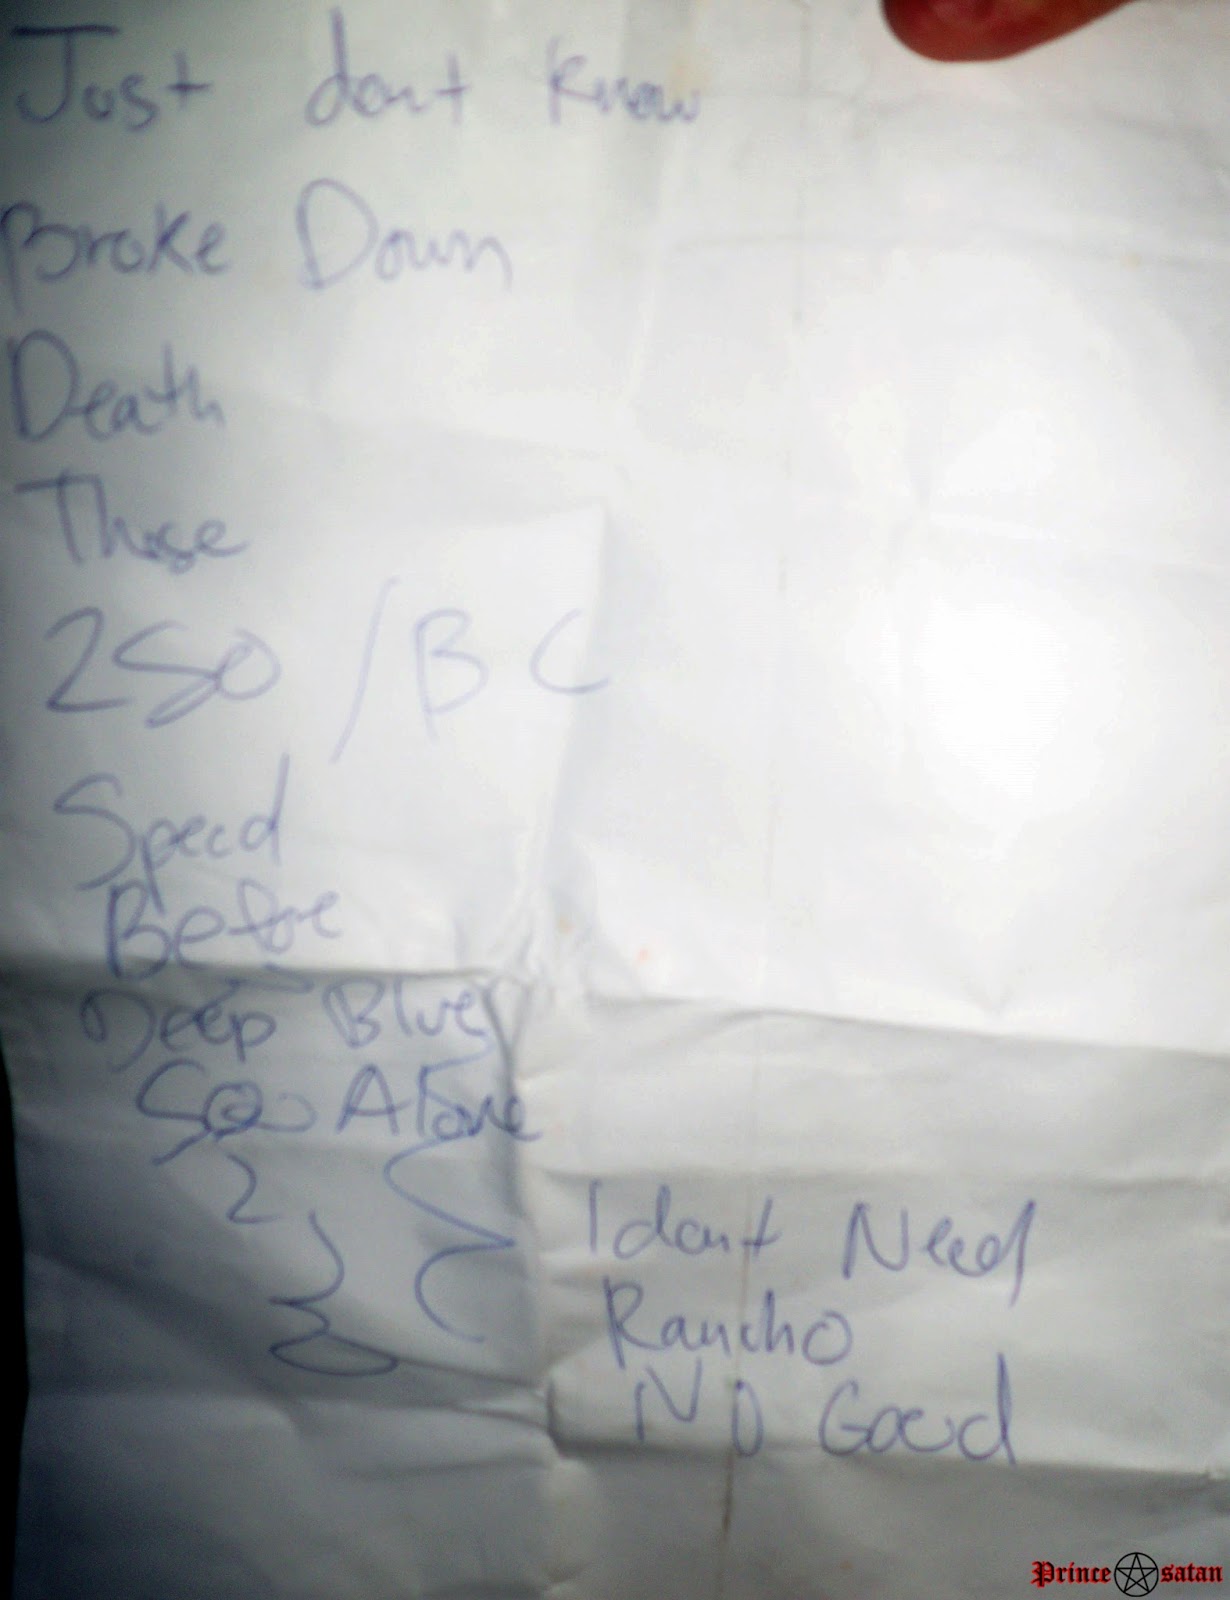 Just dont know
Broke Down
Death
These
250 / BC
Speed
Before
Deep Blue
So Alone
2
I dont Need
Rancho
NO Good
Prince satan